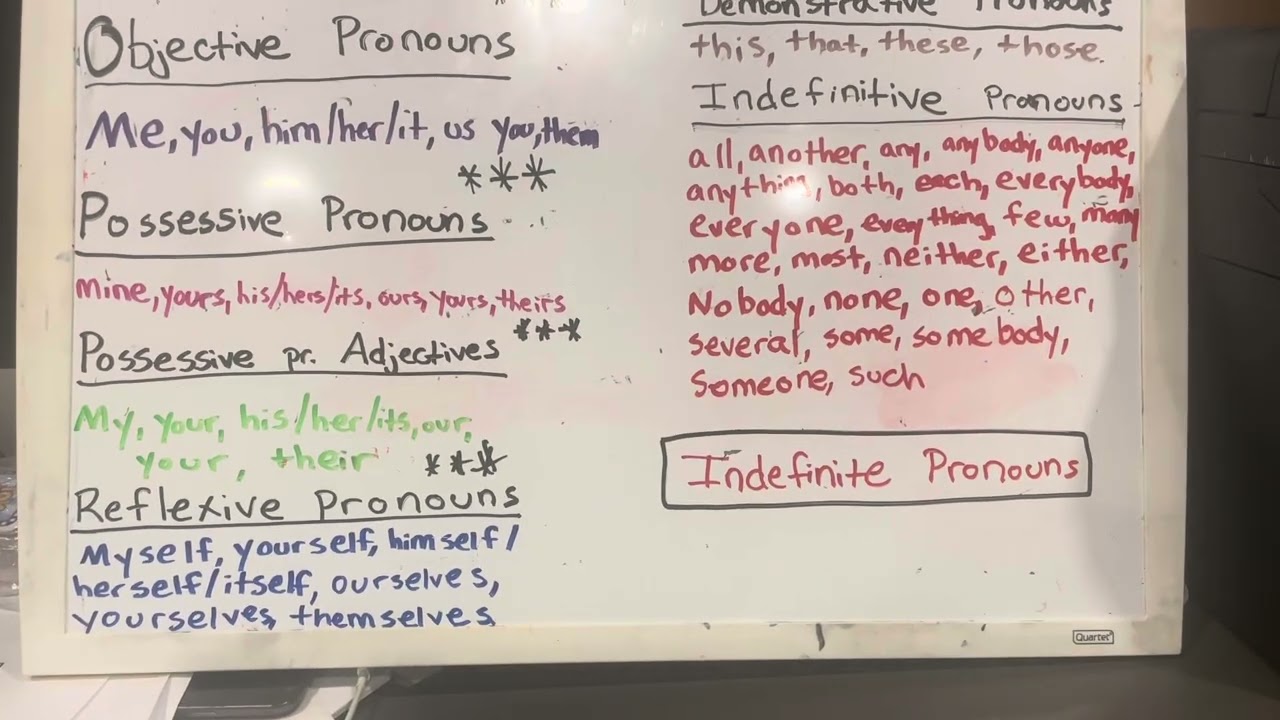 Objective Pronouns
Me, you, him/her/it, us you, them
***
Possessive Pronouns
mine, yours, his/hers/its, ours, yours, theirs
***
Possessive pr. Adjectives
My, your, his/her/its, our,
your, their ***
Reflexive Pronouns
Myself, yourself, himself/
herself/itself, ourselves,
yourselves, themselves
Demonstrative Pronouns
this, that, these, those.
Indefinitive Pronouns
all, another, any, anybody, anyone,
anything, both, each, everybody,
everyone, everything, few, many
more, most, neither, either,
Nobody, none, one, other,
several, some, somebody,
Someone, such
Indefinite Pronouns
Quartet